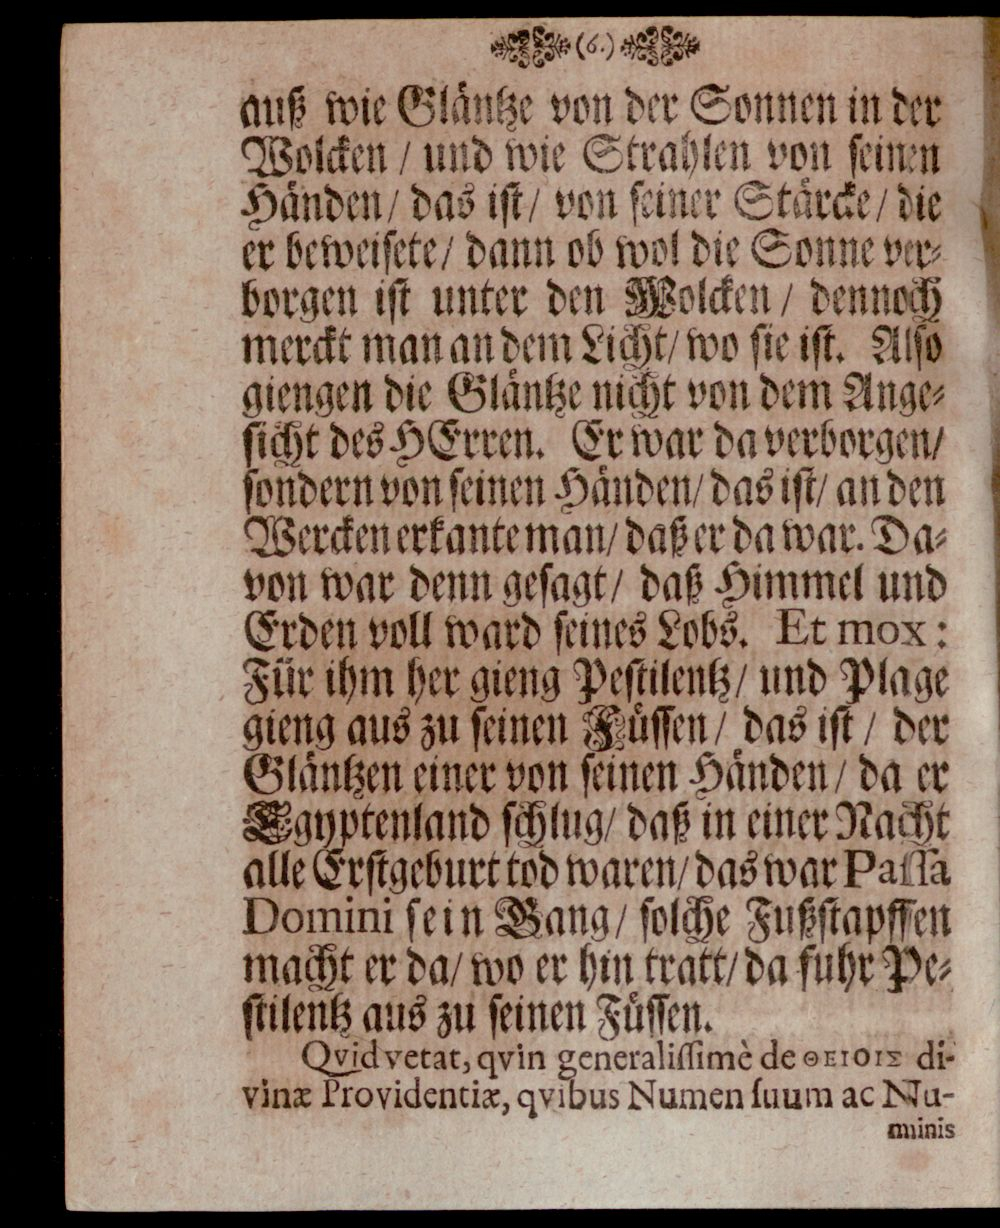 (6.)
auß wie Gläntze von der Sonnen in der
Wolcken / und wie Strahlen von seinen
Händen / das ist / von seiner Stärcke / die
er beweisete / dann ob wol die Sonne ver-
borgen ist unter den Wolcken / dennoch
merckt man an dem Licht / wo sie ist. Also
giengen die Gläntze nicht von dem Ange-
sicht des HErren. Er war da verborgen /
sondern von seinen Händen / das ist / an den
Wercken erkante man / daß er da war. Da-
von war denn gesagt / daß Himmel und
Erden voll ward seines Lobs. Et mox :
Für ihm her gieng Pestilentz / und Plage
gieng aus zu seinen Füssen / das ist / der
Gläntzen einer von seinen Händen / da er
Egyptenland schlug / daß in einer Nacht
alle Erstgeburt tod waren / das war Passa
Domini sein Gang / solche Fußstapffen
macht er da / wo er hin tratt / da fuhr Pe-
stilentz aus zu seinen Füssen.
Qvid vetat, qvin generalissimè de ΘΕΙΟΙΣ di-
vinæ Providentiæ, qvibus Numen suum ac Nu-
minis